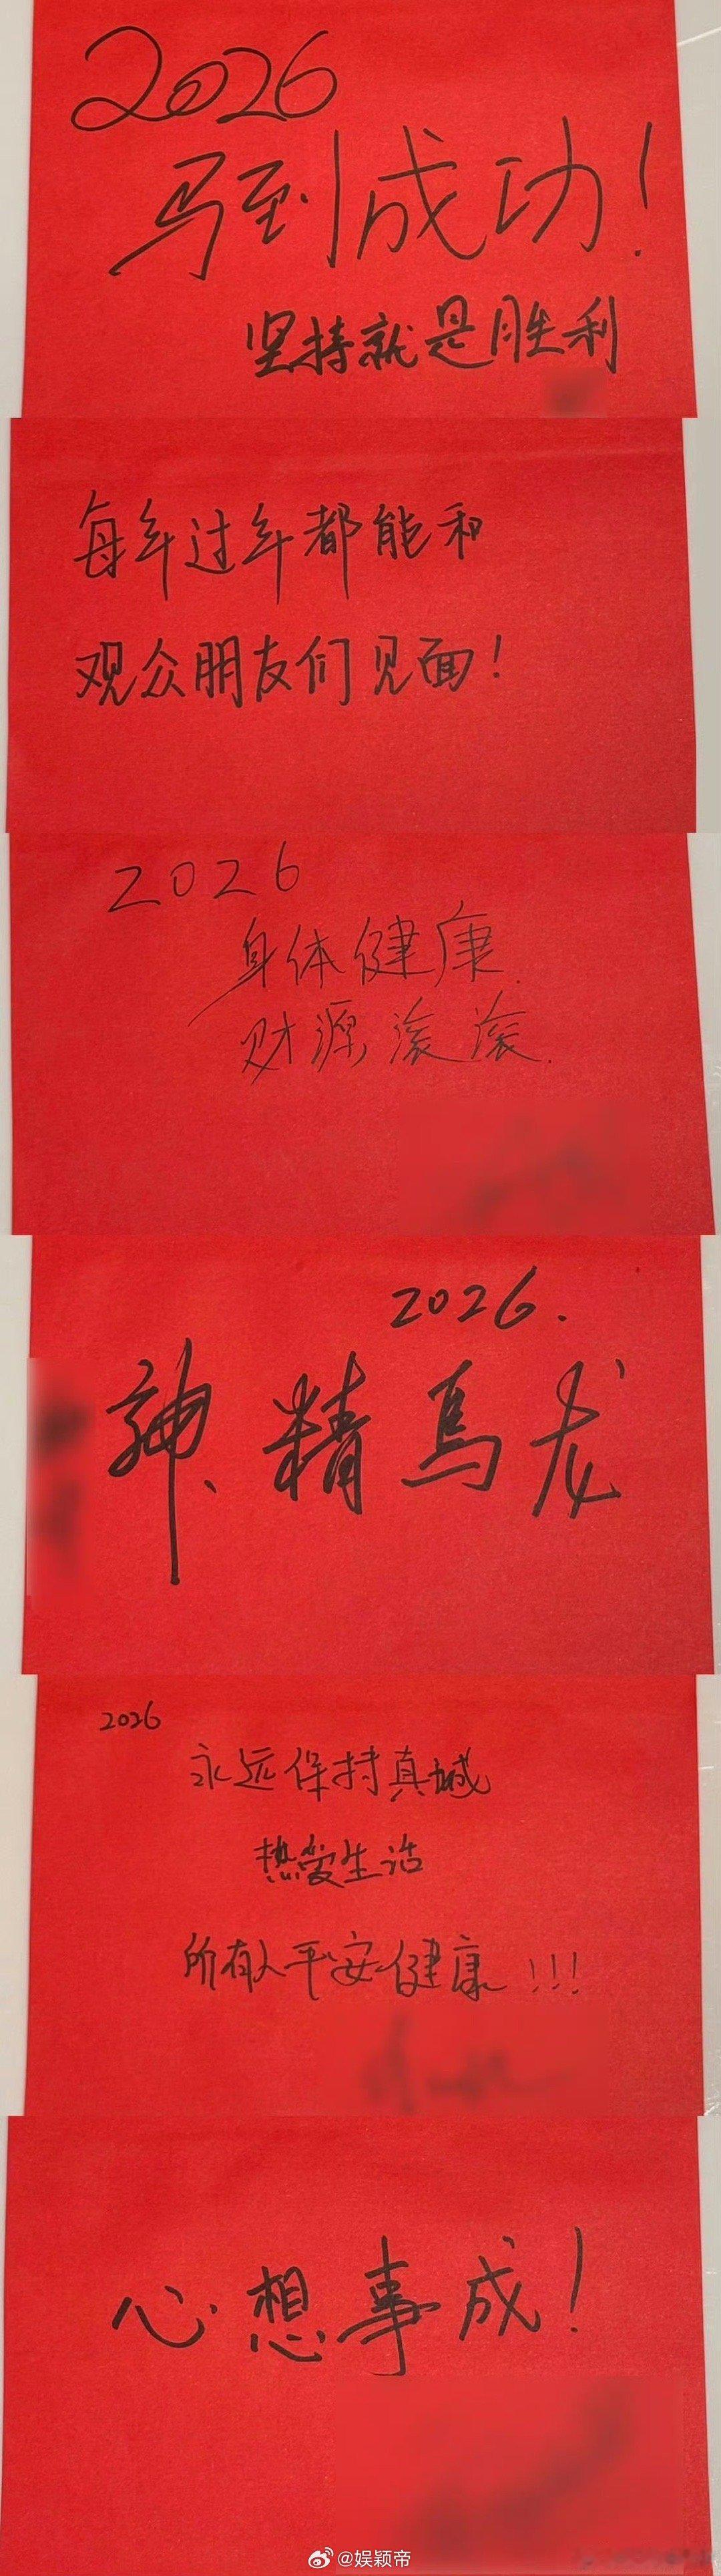 2026
马到成功!
坚持就是胜利
每年过年都能和
观众朋友们见面!
2026
身体健康.
财源滚滚.
2026.
神精馬龙
2026
永远保持真诚
热爱生活
所有人平安健康!!!
心想事成!
@娱颖帝